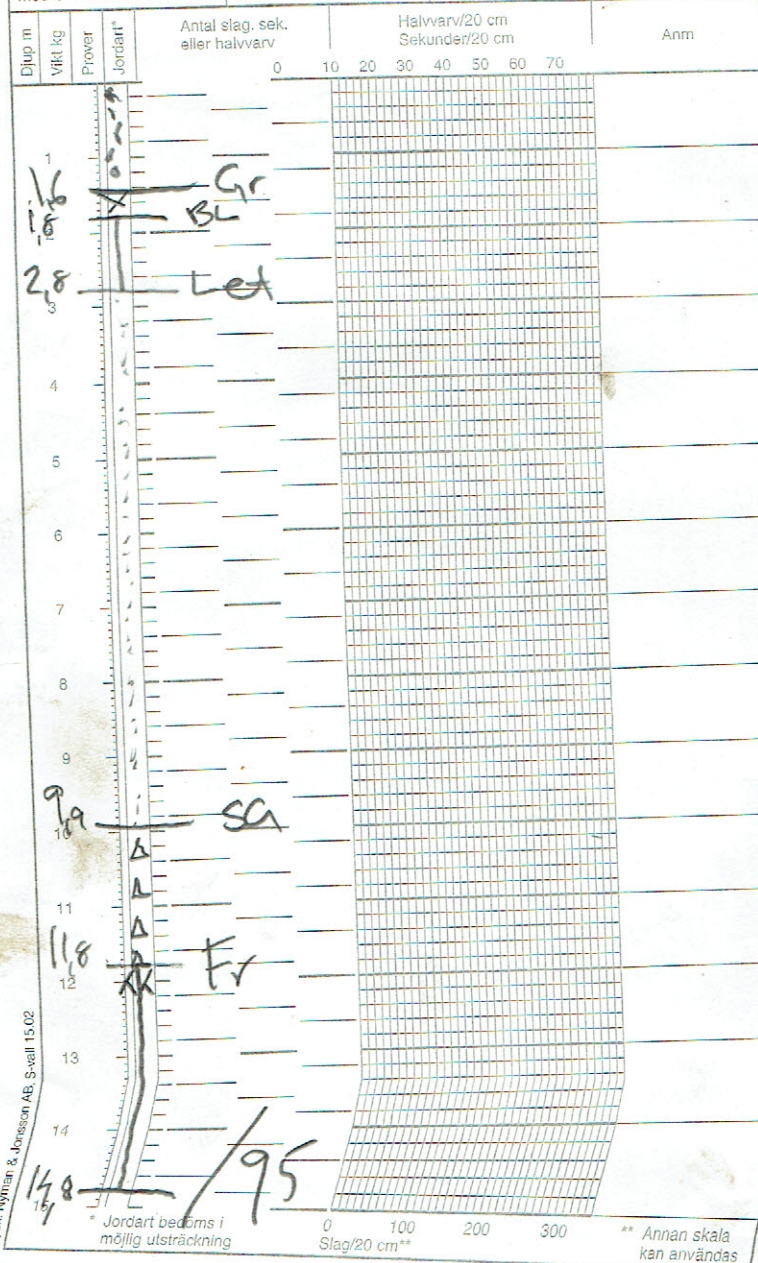 Djup m
Vikt kg
Prover
Jordart*
Antal slag. sek.
eller halvvarv
Halvvarv/20 cm
Sekunder/20 cm
Anm
0 10 20 30 40 50 60 70
1
1,6 Gr
1,8 BL
2,8 Let
3
4
5
6
7
8
9
9,9 SA
10
11
11,8 Fr
12
13
14
14,8 /95
Nyman & Jonsson AB, S-vall 15.02
* Jordart bedöms i
möjlig utsträckning
0 100 200 300
Slag/20 cm**
** Annan skala
kan användas